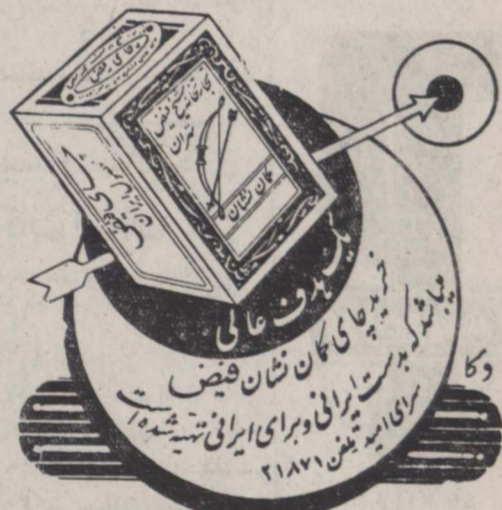 چای فیض
تجارتخانه شیخ فیض
تهران
کمان نشان
چای فیض
یک هدف عالی
خرید چای کمان نشان فیض
میباشد که بدست ایرانی و برای ایرانی تهیه شده است
سرای امید تلفن ۲۱۸۷۱
وکا